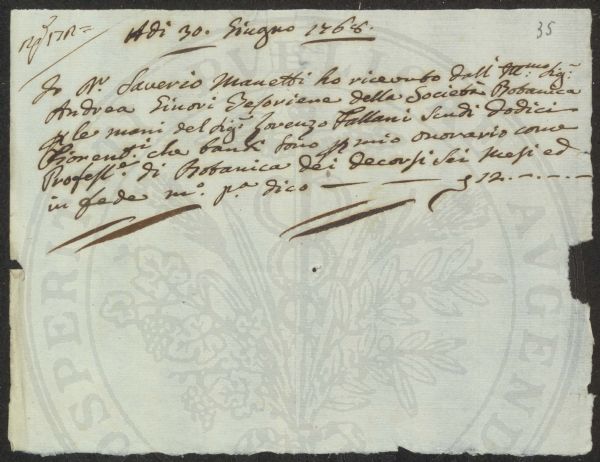 Adi 30. Giugno 1768.
35
Io Dr. Saverio Manetti ho ricevuto dall' Ill:mo Sig:r
Andrea Ginori Tesoriere della Società Botanica
p le mani del Sig:r Lorenzo Fallani Scudi dodici
Fiorent:i che tanti sono p mio onorario come
Profess:e di Botanica dei decorsi sei mesi ed
in fede m:o p:a dico — 12. - - - -